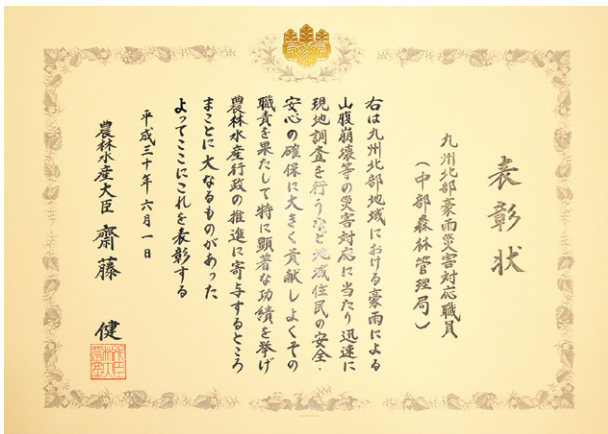 表彰状
九州北部豪雨災害対応職員
(中部森林管理局)
右は九州北部地域における豪雨による
山腹崩壊等の災害対応に当たり迅速に
現地調査を行うなど地域住民の安全・
安心の確保に大きく貢献しよくその
職責を果たして特に顕著な功績を挙げ
農林水産行政の推進に寄与するところ
まことに大なるものがあった
よってここにこれを表彰する
平成三十年六月一日
農林水産大臣 齋藤 健